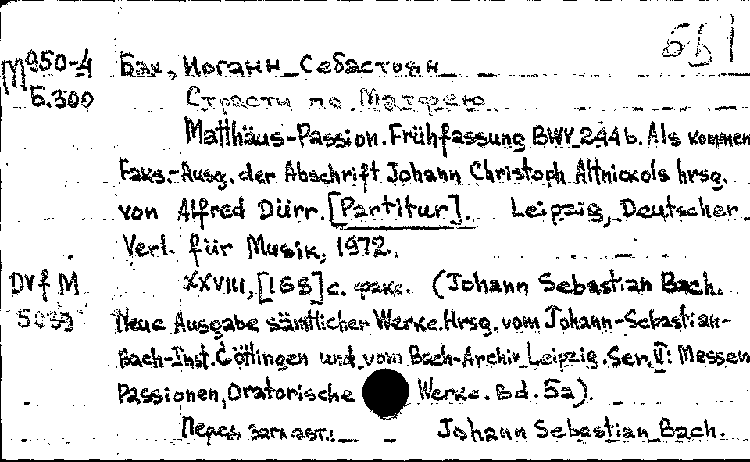 М950-4 Бах, Иоганн Себастьян
Б.300 Страсти по Матфею
Matthäus-Passion. Frühfassung BWV 244b. Als kommen
Faks.-Ausg. der Abschrift Johann Christoph Altnickols hrsg.
von Alfred Dürr. [Partitur]. Leipzig, Deutscher
Verl. für Musik, 1972.
DVf M XXVIII, [168] с. факс. (Johann Sebastian Bach.
Neue Ausgabe sämtlicher Werke. Hrsg. vom Johann-Sebastian-
Bach-Inst. Göttingen und vom Bach-Archiv Leipzig. Ser. II: Messen
Passionen, Oratorische Werke. Bd. 5a).
Перед загл авт.: Johann Sebastian Bach.